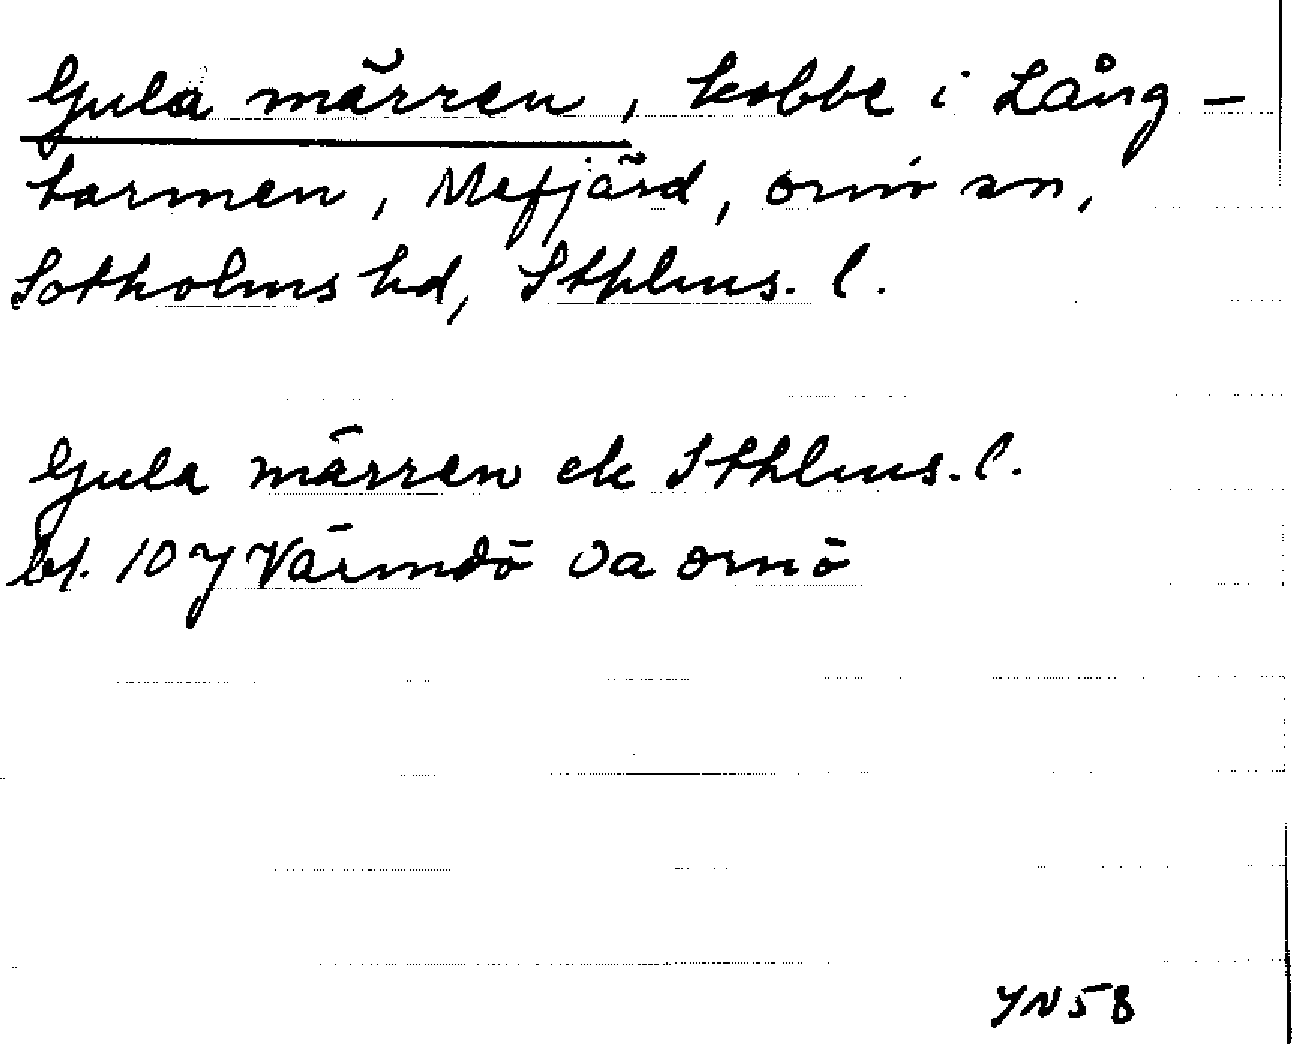 Gula märren, kobbe i Lång-
tarmen, Mefjärd, Ornö sn,
Sotholms hd, Sthlms. l.
Gula märren ek Sthlms. l.
bl. 10 y Värmdö Oa Ornö
YN58